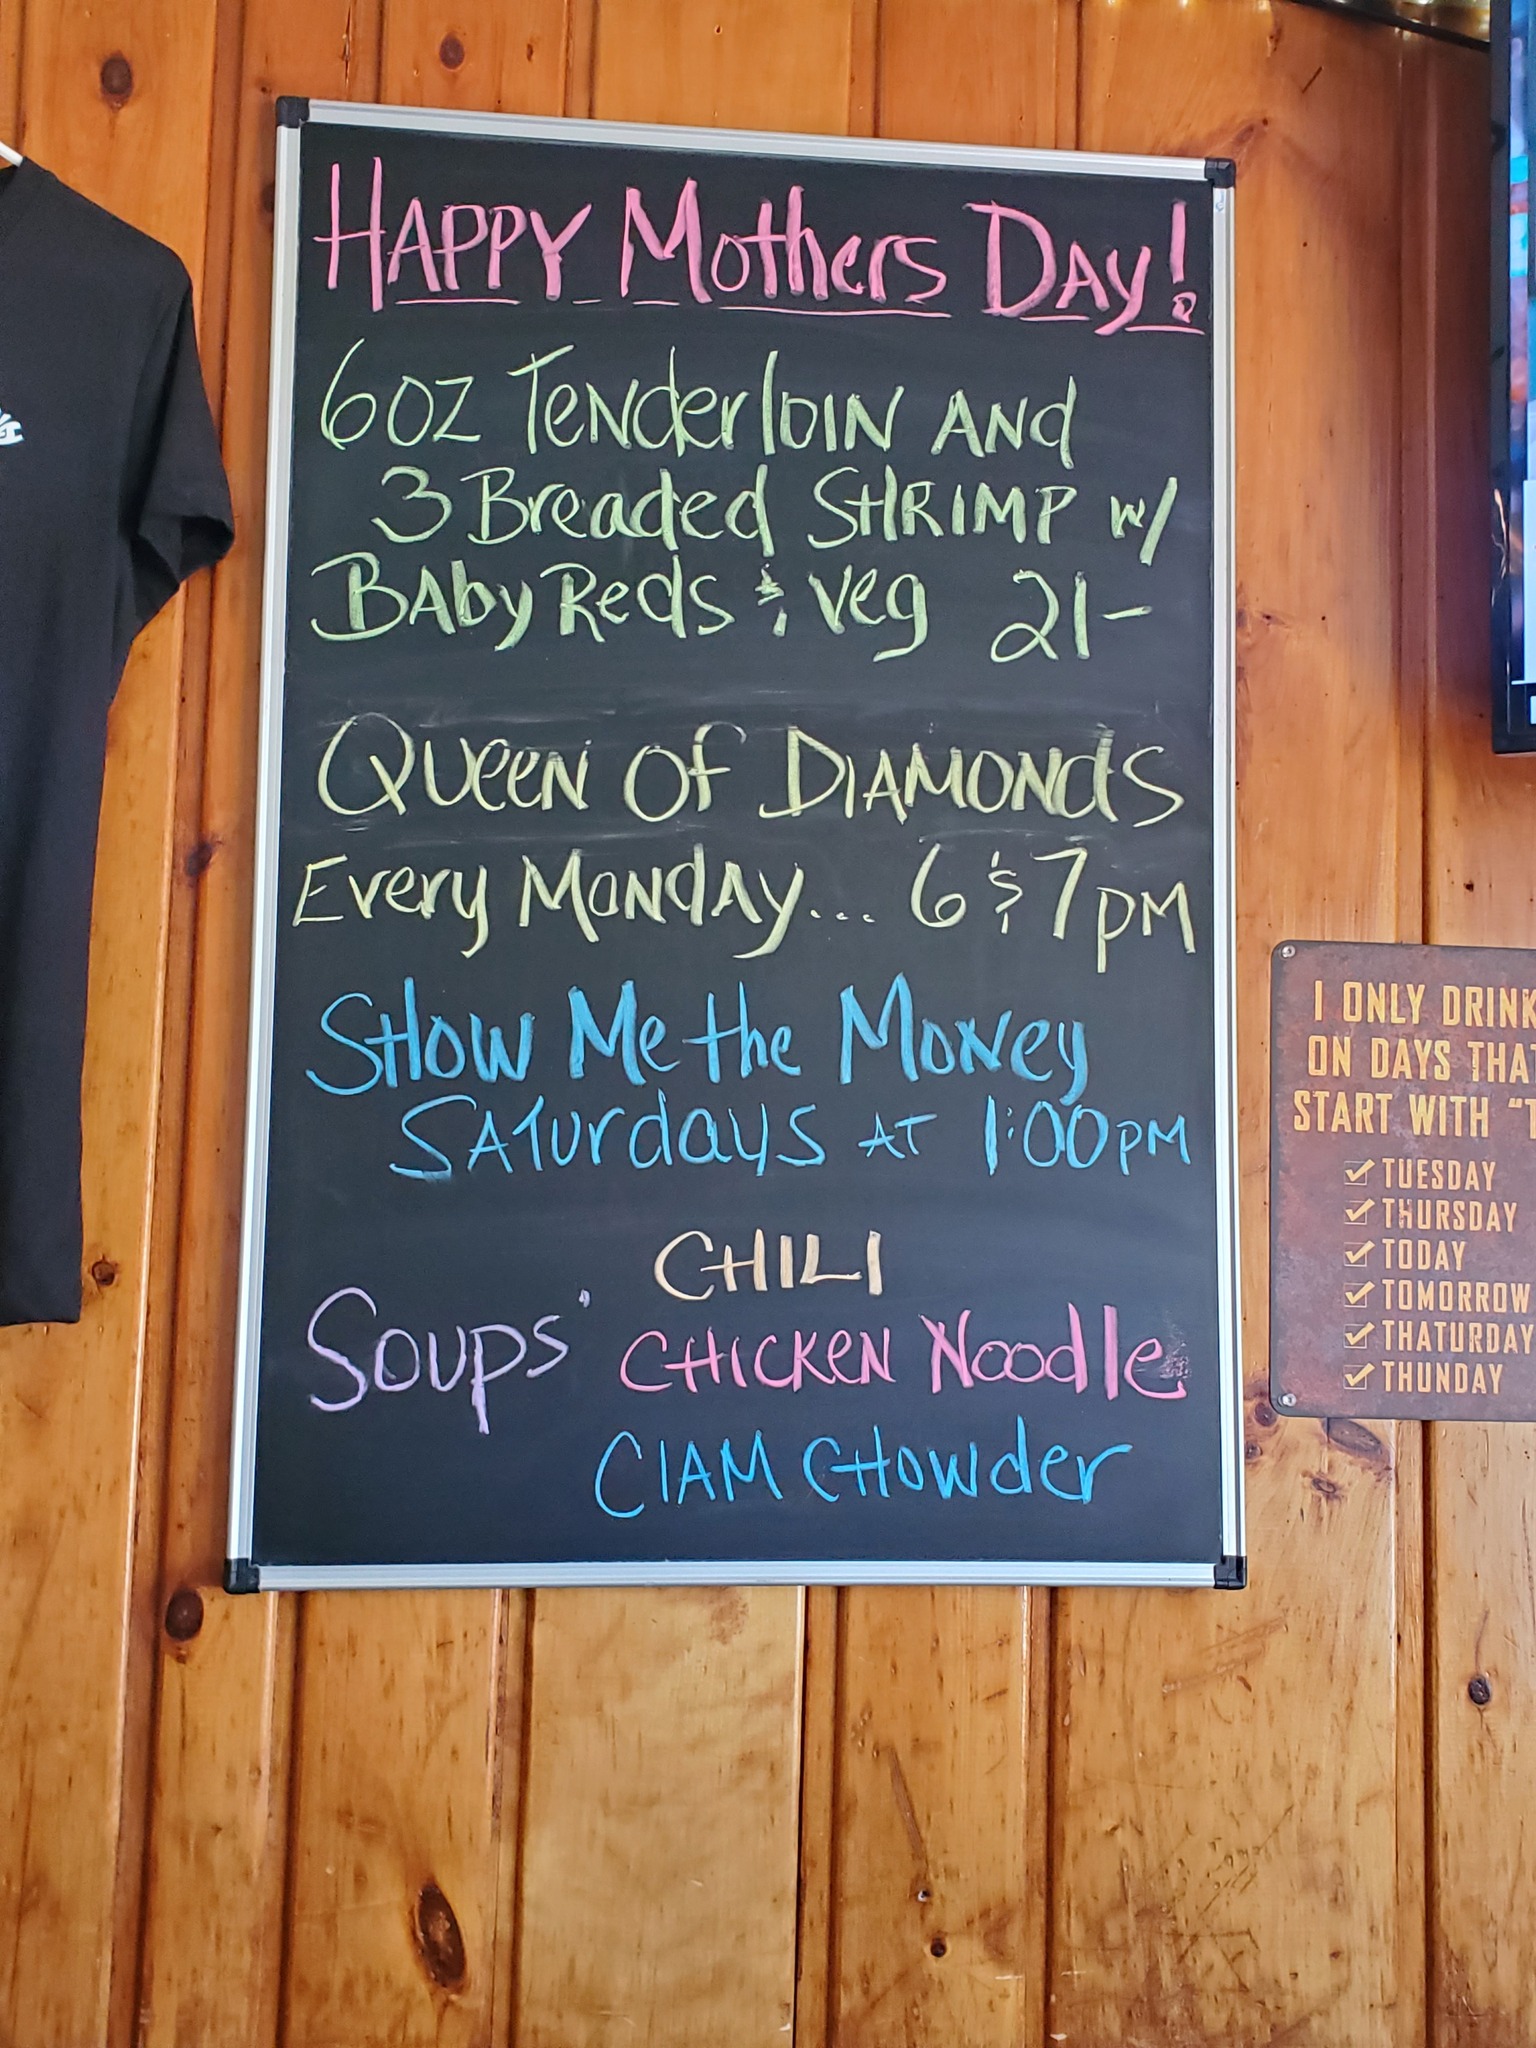 HAPPY Mothers DAY!
6oz TenderloIN ANd
3 Breaded SHRIMP w/
BAby Reds & Veg 21-
QUeeN Of DIAMONdS
Every MoNdAy... 6 & 7pM
SHOW Me the MoNey
SATurdays AT 1:00pM
CHILI
Soups' CHICKEN Noodle
ClAM CHowder
I ONLY DRINK
ON DAYS THAT
START WITH "T
TUESDAY
THURSDAY
TODAY
TOMORROW
THATURDAY
THUNDAY